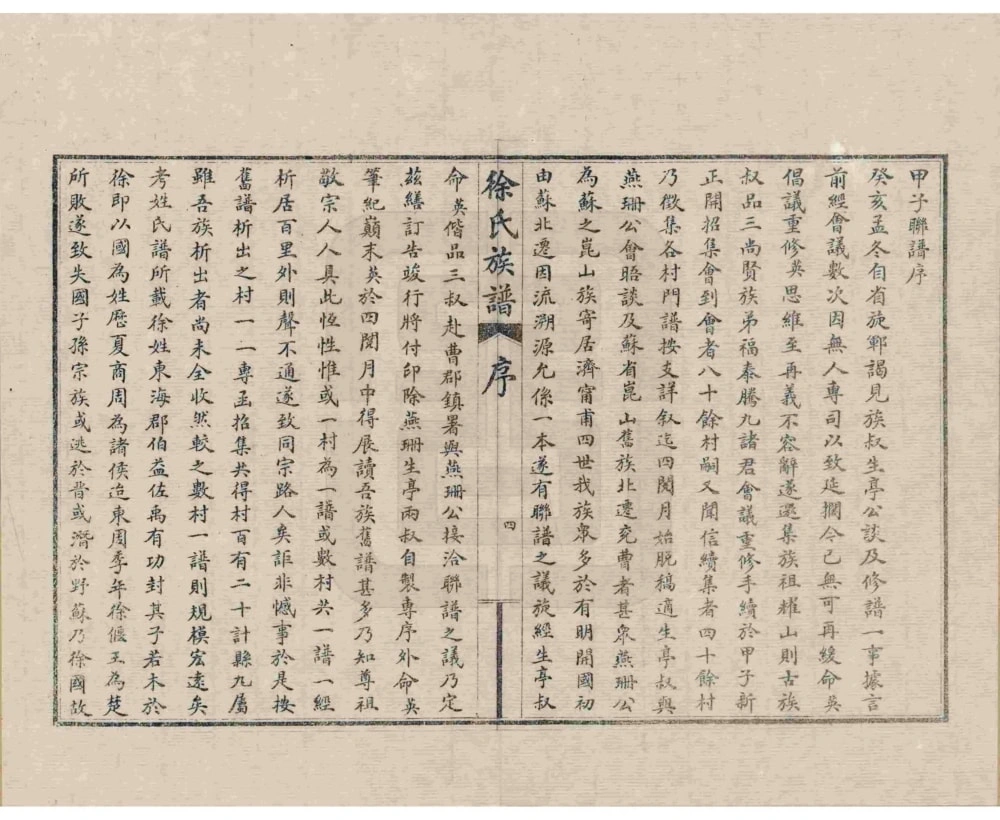 甲子聯譜序
癸亥孟冬自省旋鄆謁見族叔生亭公談及修譜一事據言
前經會議數次因無人專司以致延擱今已無可再緩命英
倡議重修英思維至再義不容辭遂邀集族祖耀山則古族
叔品三尚賢族弟福泰騰九諸君會議重修手續於甲子新
正開招集會到會者八十餘村嗣又聞信續集者四十餘村
乃徵集各村門譜按支詳叙迄四閱月始脫稿適生亭叔與
燕珊公會晤談及蘇省崑山舊族北遷兖曹者甚衆燕珊公
為蘇之崑山族寄居濟甯甫四世我族衆多於有明開國初
由蘇北遷因流溯源允係一本遂有聯譜之議旋經生亭叔
徐氏族譜 序 四
命英偕品三叔赴曹郡鎮署與燕珊公接洽聯譜之議乃定
茲繕訂告竣行將付印除燕珊生亭兩叔自製專序外命英
筆紀巔末英於四閱月中得展讀吾族舊譜甚多乃知尊祖
敬宗人人具此恆性惟或一村為一譜或數村共一譜一經
析居百里外則聲不通遂致同宗路人矣詎非憾事於是按
舊譜析出之村一一專函招集共得村百有二十計縣九屬
雖吾族析出者尚未全收然較之數村一譜則規模宏遠矣
考姓氏譜所載徐姓東海郡伯益佐禹有功封其子若木於
徐即以國為姓歷夏商周為諸侯迨東周季年徐偃王為楚
所敗遂致失國子孫宗族或逃於晋或潛於野蘇乃徐國故